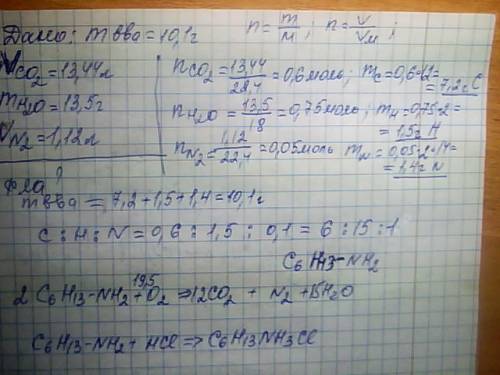 Дано: m вва = 10,1г n = m/M ; n = V/VM ;
VCO2 = 13,44л nCO2 = 13,44/22,4 = 0,6 моль; mC = 0,6·12 = = 7,2г C
mH2O = 13,5г nH2O = 13,5/18 = 0,75 моль; mH = 0,75·2 = = 1,5г H
VN2 = 1,12л nN2 = 1,12/22,4 = 0,05 моль mN = 0,05·2·14 = = 1,4г N
Ф-ла ?
m вва = 7,2 + 1,5 + 1,4 = 10,1г
C : H : N = 0,6 : 1,5 : 0,1 = 6 : 15 : 1
C6H13–NH2
2 C6H13–NH2 + 19,5 O2 => 12CO2 + N2 + 15H2O
C6H13–NH2 + HCl => C6H13NH3Cl